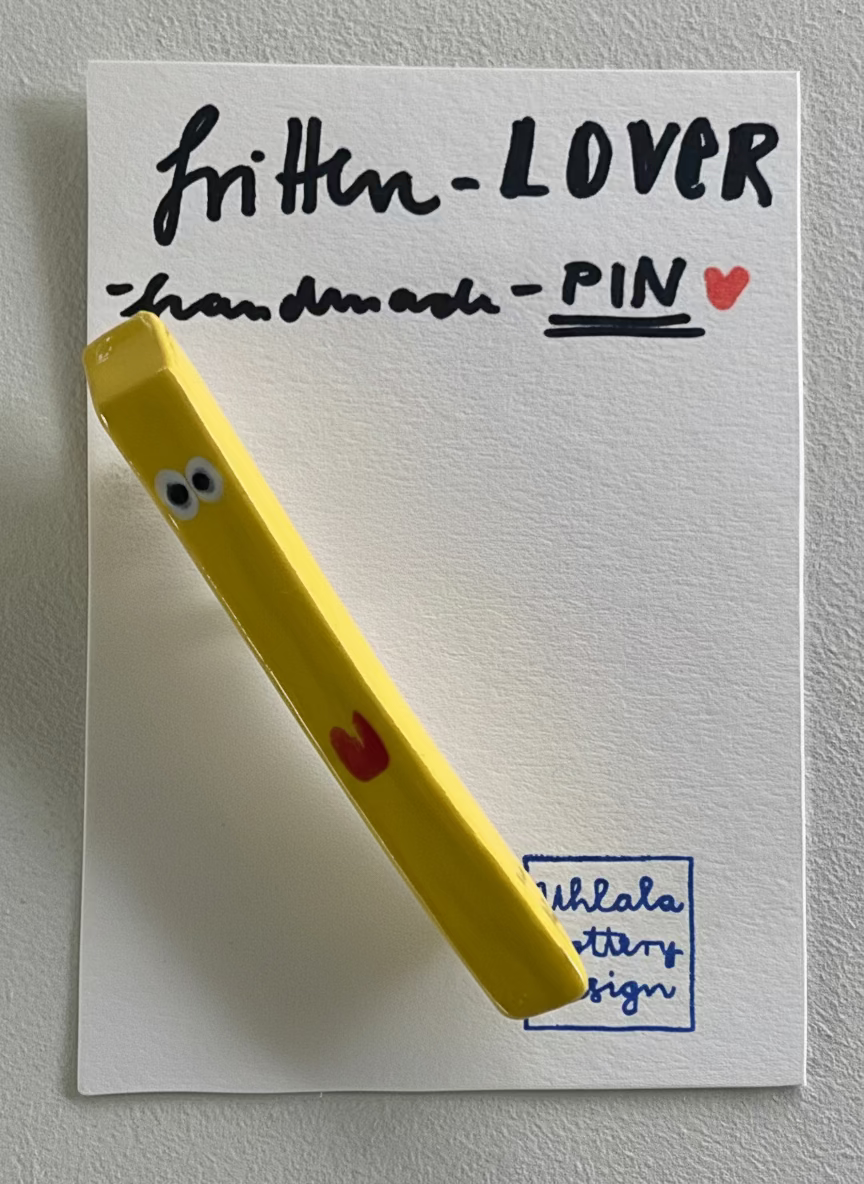 fritten-LOVER
-handmade-PIN ♥
Uhlala
ottery
sign